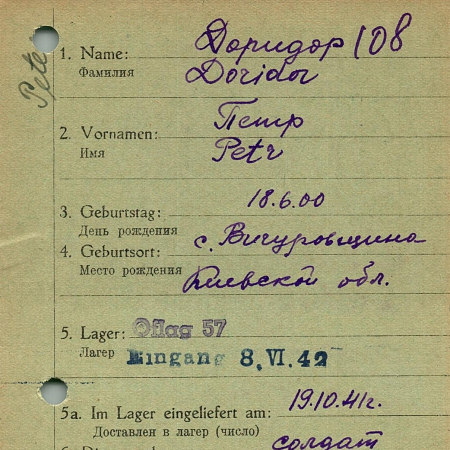 Доридор 108
1. Name: Doridor
Фамилия
Pete
Петр
2. Vornamen: Petr
Имя
18.6.00
3. Geburtstag:
День рождения
с. Вигуровщина
4. Geburtsort:
Место рождения
Киевской обл.
5. Lager: Oflag 57
Лагерь
Eingang 8. VI. 42
19.10.41г.
5a. Im Lager eingeliefert am:
Доставлен в лагерь (число)
солдат